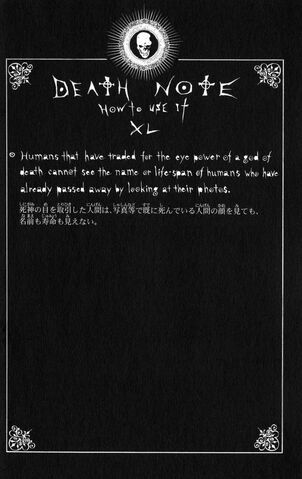 DEATH NOTE
HOW TO USE IT
XL
Humans that have traded for the eye power of a god of
death cannot see the name or life-span of humans who have
already passed away by looking at their photos.
死神の目を取引した人間は、写真等で既に死んでいる人間の顔を見ても、
名前も寿命も見えない。